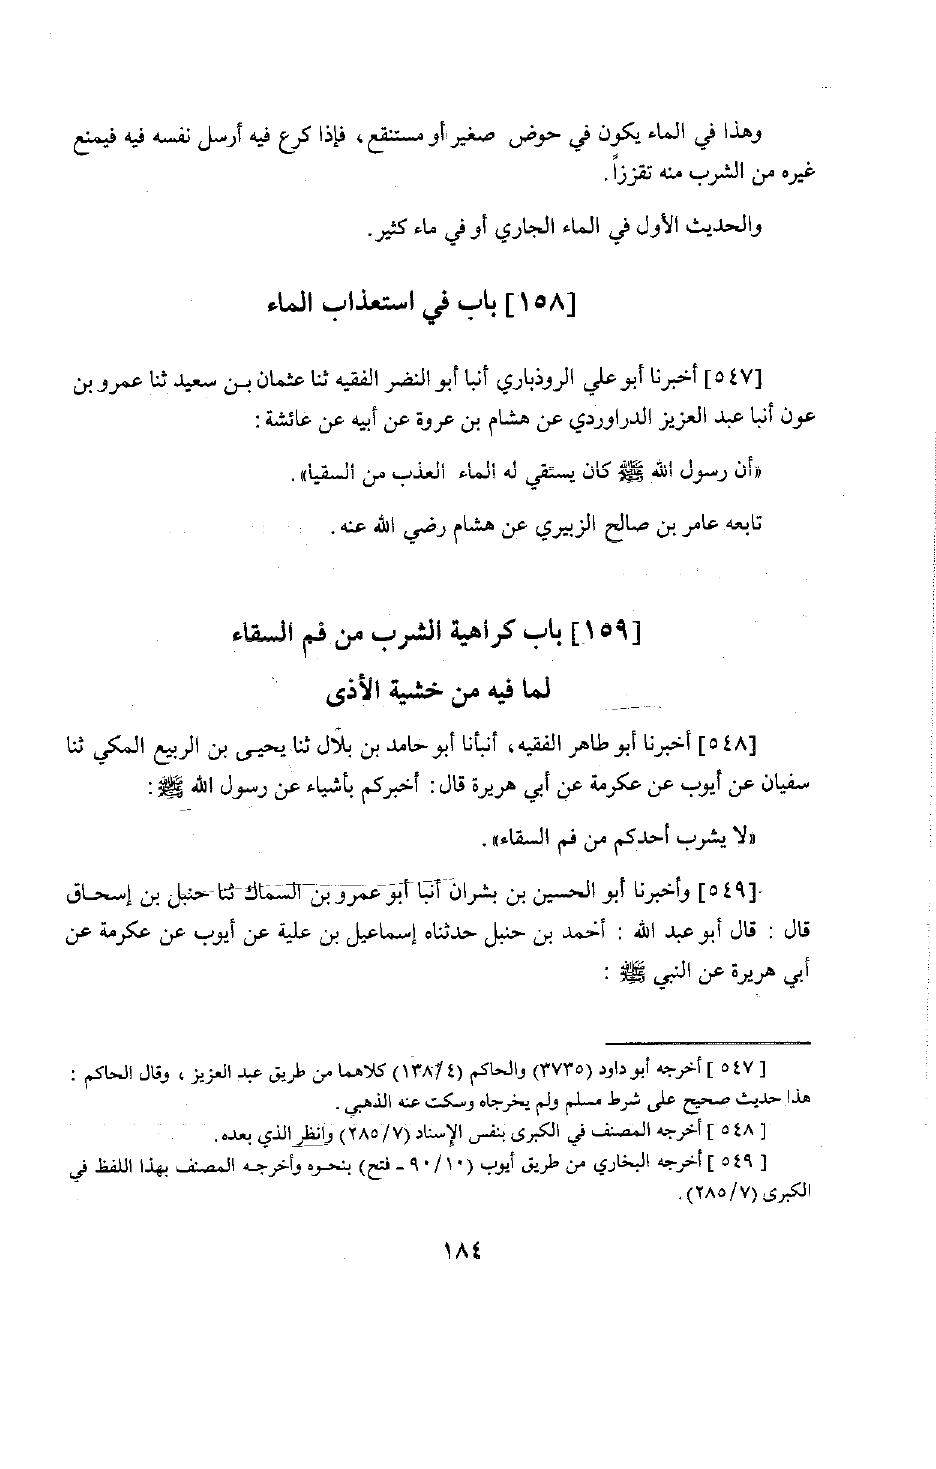 وهذا في الماء يكون في حوض صغير أو مستنقع، فإذا كرع فيه أرسل نفسه فيه فيمنع
غيره من الشرب منه تقززاً.
والحديث الأول في الماء الجاري أو في ماء كثير.
[١٥٨] باب في استعذاب الماء
[٥٤٧] أخبرنا أبو علي الروذباري أنبا أبو النضر الفقيه ثنا عثمان بن سعيد ثنا عمرو بن
عون أنبا عبد العزيز الدراوردي عن هشام بن عروة عن أبيه عن عائشة:
«أن رسول الله ﷺ كان يستقي له الماء العذب من السقيا».
تابعه عامر بن صالح الزبيري عن هشام رضي الله عنه.
[١٥٩] باب كراهية الشرب من فم السقاء
لما فيه من خشية الأذى
[٥٤٨] أخبرنا أبو طاهر الفقيه، أنبأنا أبو حامد بن بلال ثنا يحيى بن الربيع المكي ثنا
سفيان عن أيوب عن عكرمة عن أبي هريرة قال: أخبركم بأشياء عن رسول الله ﷺ:
«لا يشرب أحدكم من فم السقاء».
[٥٤٩] وأخبرنا أبو الحسين بن بشران أنبا أبو عمرو بن السماك ثنا حنبل بن إسحاق
قال: قال أبو عبد الله: أحمد بن حنبل حدثناه إسماعيل بن علية عن أيوب عن عكرمة عن
أبي هريرة عن النبي ﷺ:
[٥٤٧] أخرجه أبو داود (٣٧٣٥) والحاكم (١٣٨/٤) كلاهما من طريق عبد العزيز، وقال الحاكم:
هذا حديث صحيح على شرط مسلم ولم يخرجاه وسكت عنه الذهبي.
[٥٤٨] أخرجه المصنف في الكبرى بنفس الإسناد (٢٨٥/٧) وانظر الذي بعده.
[٥٤٩] أخرجه البخاري من طريق أيوب (٩٠/١٠ - فتح) بنحوه وأخرجه المصنف بهذا اللفظ في
الكبرى (٢٨٥/٧).
١٨٤